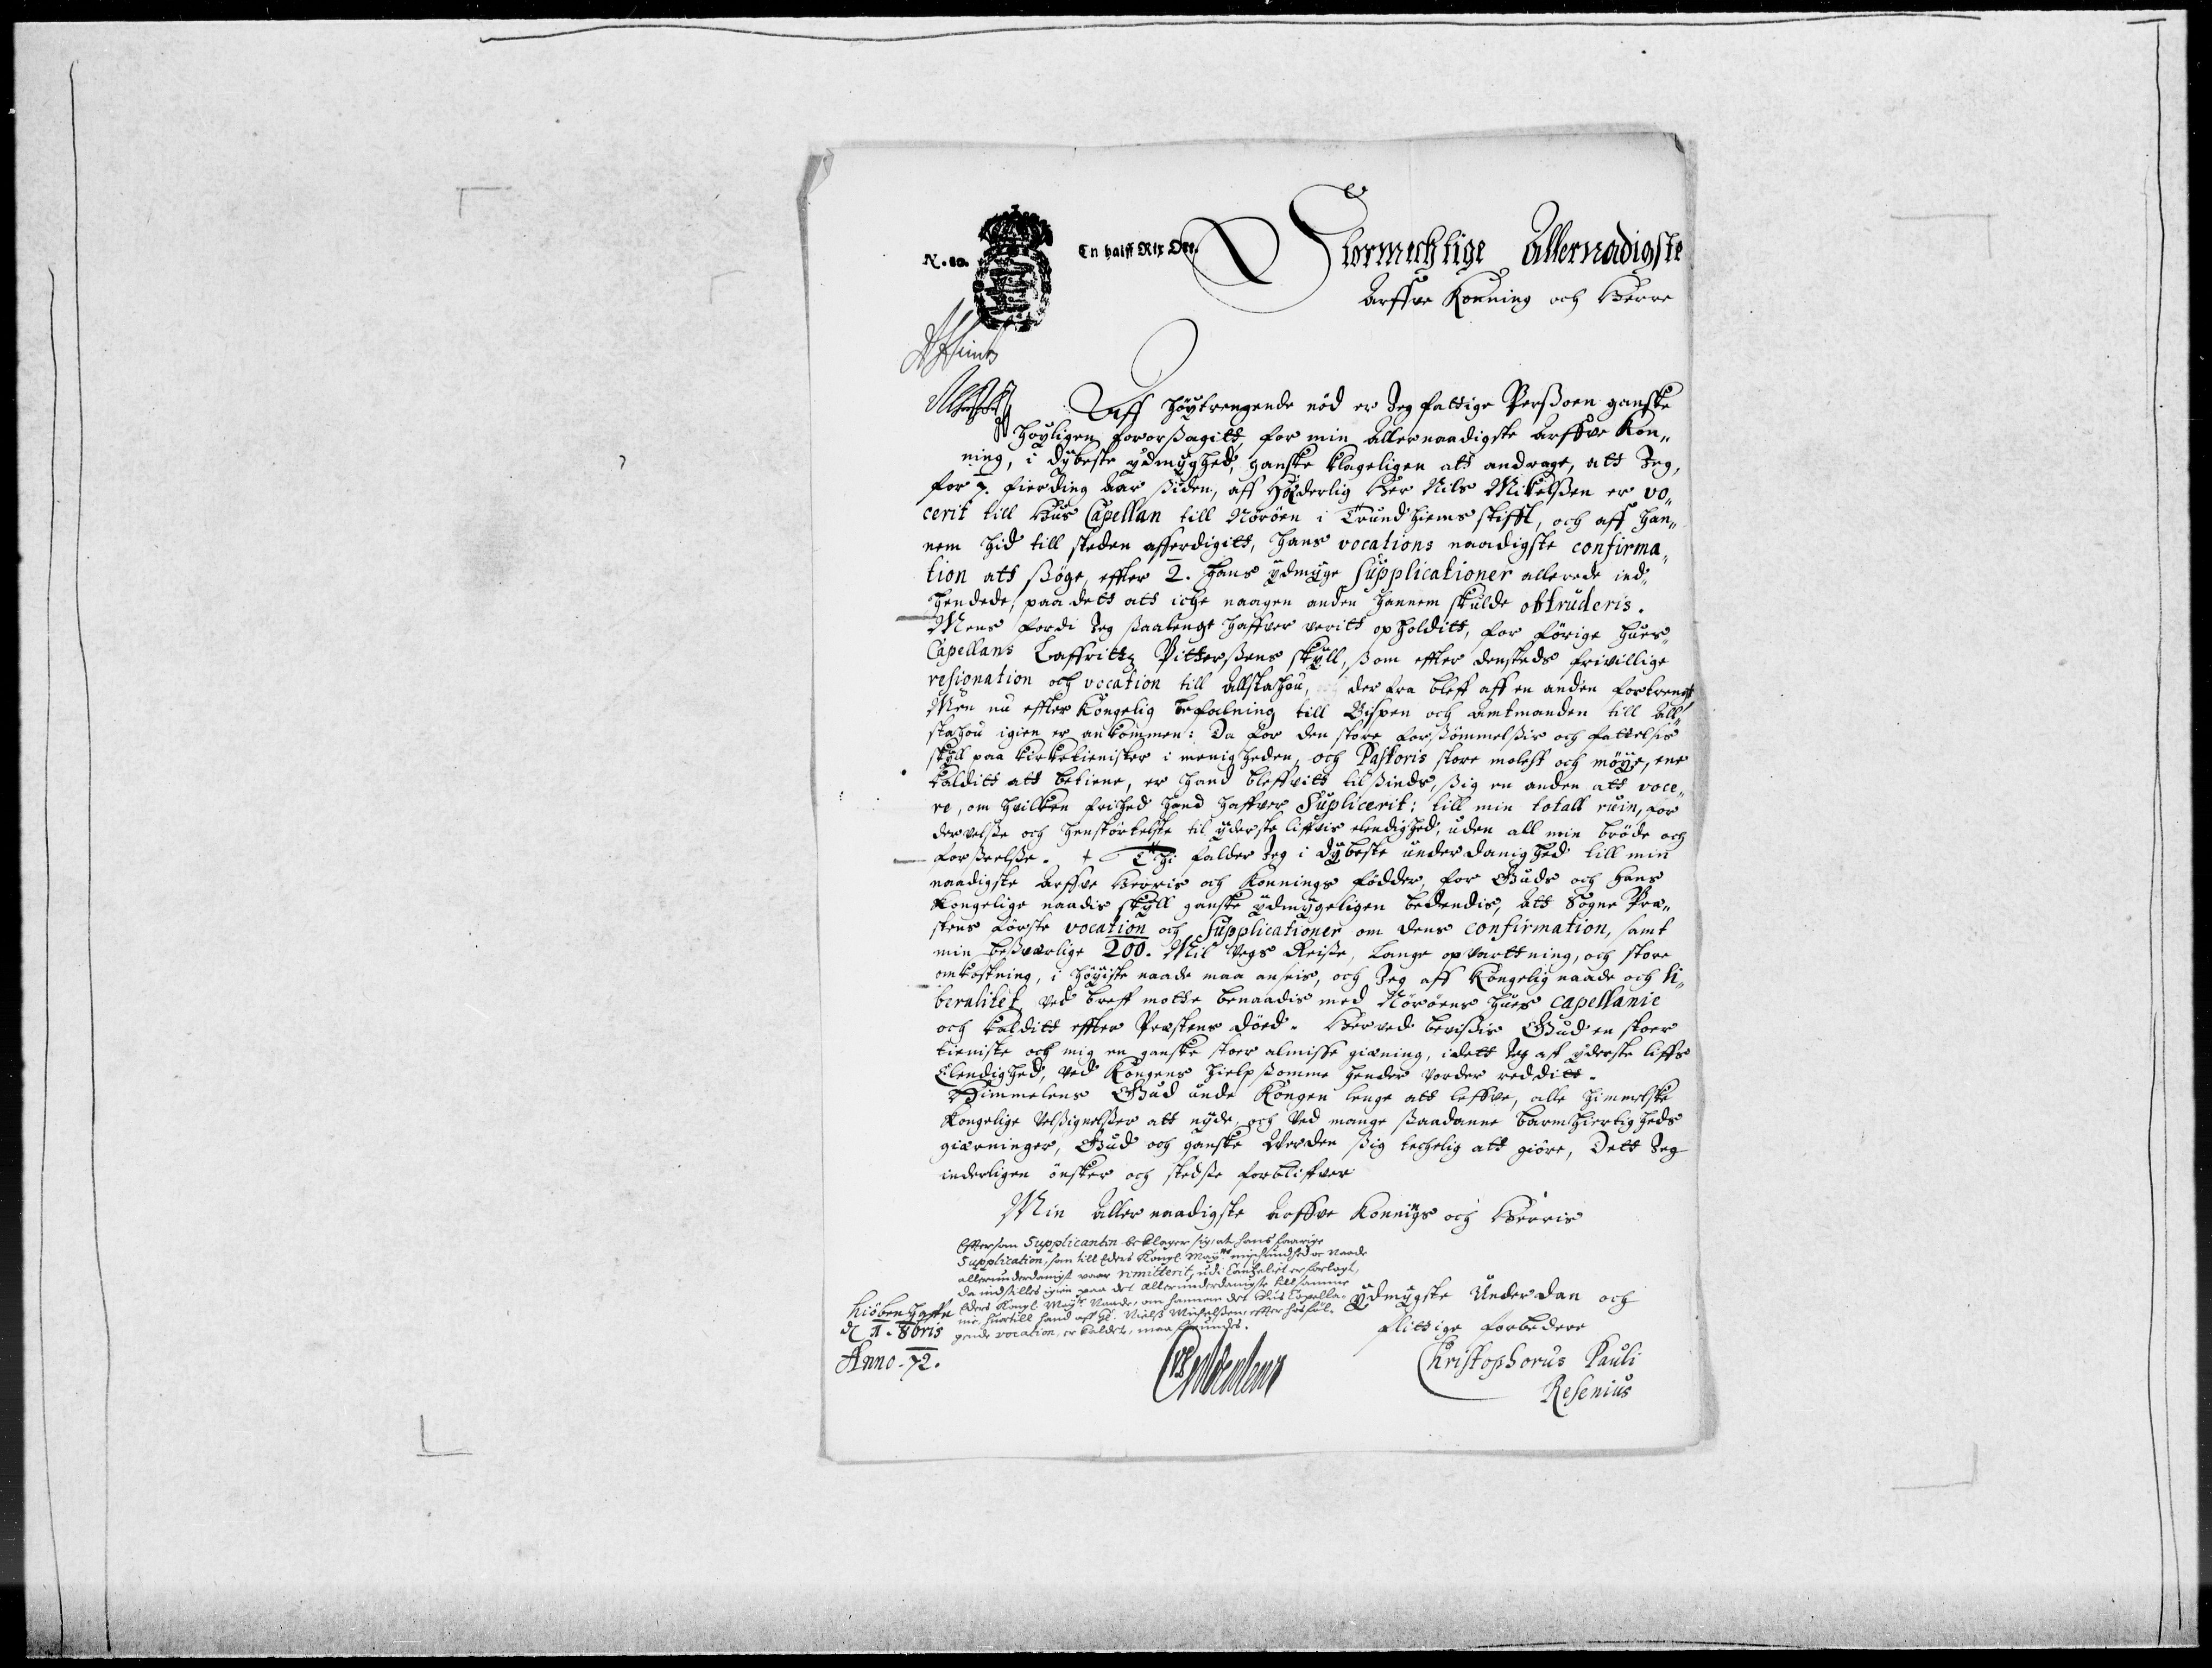 N. 10.
En halff Rix Ort.
Stormechtige Allernadigste
Arffve Konning och Herre
Aff höytrengende nöd er Jeg fattige Perßoen ganske
höyligen fororßagitt, for min allernaadigste Arffve Kon„
ning, i dÿbeste ÿdmÿghed, ganske klageligen att andrage, att Jeg,
for 7. fierding Aar siden, aff Hæderlig Her Nils Mikelßen er vo„
cerit till Hus Capellan till Nöröen i Trundhiems stifft, och aff han„
nem hid till steden afferdigitt, hans vocations naadigste confirma„
tion att ßöge, effter 2. hans ÿdmÿge Supplicationer allerede ind„
hendede, paa dett att iche naagen anden hannem skulde obtruderis.
Mens fordi Jeg ßaalenge haffver veritt opholditt, for förige hues„
Capellans Laffrittz Pitterßens skÿll, ßom effter densteds frivillige
resignation och vocation till Allstahou, der fra bleff aff en anden fortrengt
Men nu effter Kongelig befalning till Bispen och amtmanden till All„
stahou igien er ankommen: Da for den store forßömmelßis och fattelsis
skÿll paa kirketienister i menigheden, och Pastoris store molest och möÿe, ene
kalditt att betiene, er hand bleffvitt tilßinds, ßig en anden att voce„
re, om hvilken frihed hand haffver Suplicerit: till min totall ruin, for
dervelße och henstörtelße til ÿderste liffvis elendighed, uden all min bröde och
forßeelße. + Thi falder Jeg i dÿbeste underdanighed till min
naadigste Arffve Herris och Konnings födder, for Guds och hans
Kongelige naadis skÿll ganske ÿdmÿgeligen bedendis, att Sogne Præ„
stens förste vocation och Supplicationer om dens confirmation, samt
min beßværlige 200. Mil Vegs Reiße, Lange opvarttning, och store
omkostning, i höÿiste naade maa anseis, och Jeg aff Kongelig naade och li„
beralitet ved breff motte benaadis med Nöröens hues capellanie
och kalditt effter Præstens död. Herved bevißis Gud en stoer
tieniste och mig en ganske stoer almisse giærning, i dett Jeg aff ÿderste liffs
Elendighed, ved Kongens hielpßomme hender vorder redditt.
Himmelens Gud unde Kongen lenge att leffve, alle himmelske
Kongelige velßignelßer att nÿde och ved mange ßaadanne barmhiertigheds
giærninger, Gud och ganske Verden ßig techelig att giöre, Dett Jeg
inderligen önsker och stedße forbliffver
Min Aller naadigste Arffve Konnigs och Herris
Eftersom Supplicanten beklager sig, at hans faarige
Supplication, som till Eders Kongl. Maÿtts
allerunderdanigst vaar remitterit, udi Canceliet er forlagt,
da indstilles igien paa det allerunderdanigste till samme
Eders Kongl. Maytts Naade, om hannem det Huus Capella„
nie, huortill hand aff Hr. Niels Michelßen, effter hosföl„
gende vocation, er kaldet, maa forundes.
Kiöbenhaffn
d 1. 8bris
Anno 72.
ÿdmÿgste Underdan och
flittige forbedere
Christophorus Pauli
Resenius